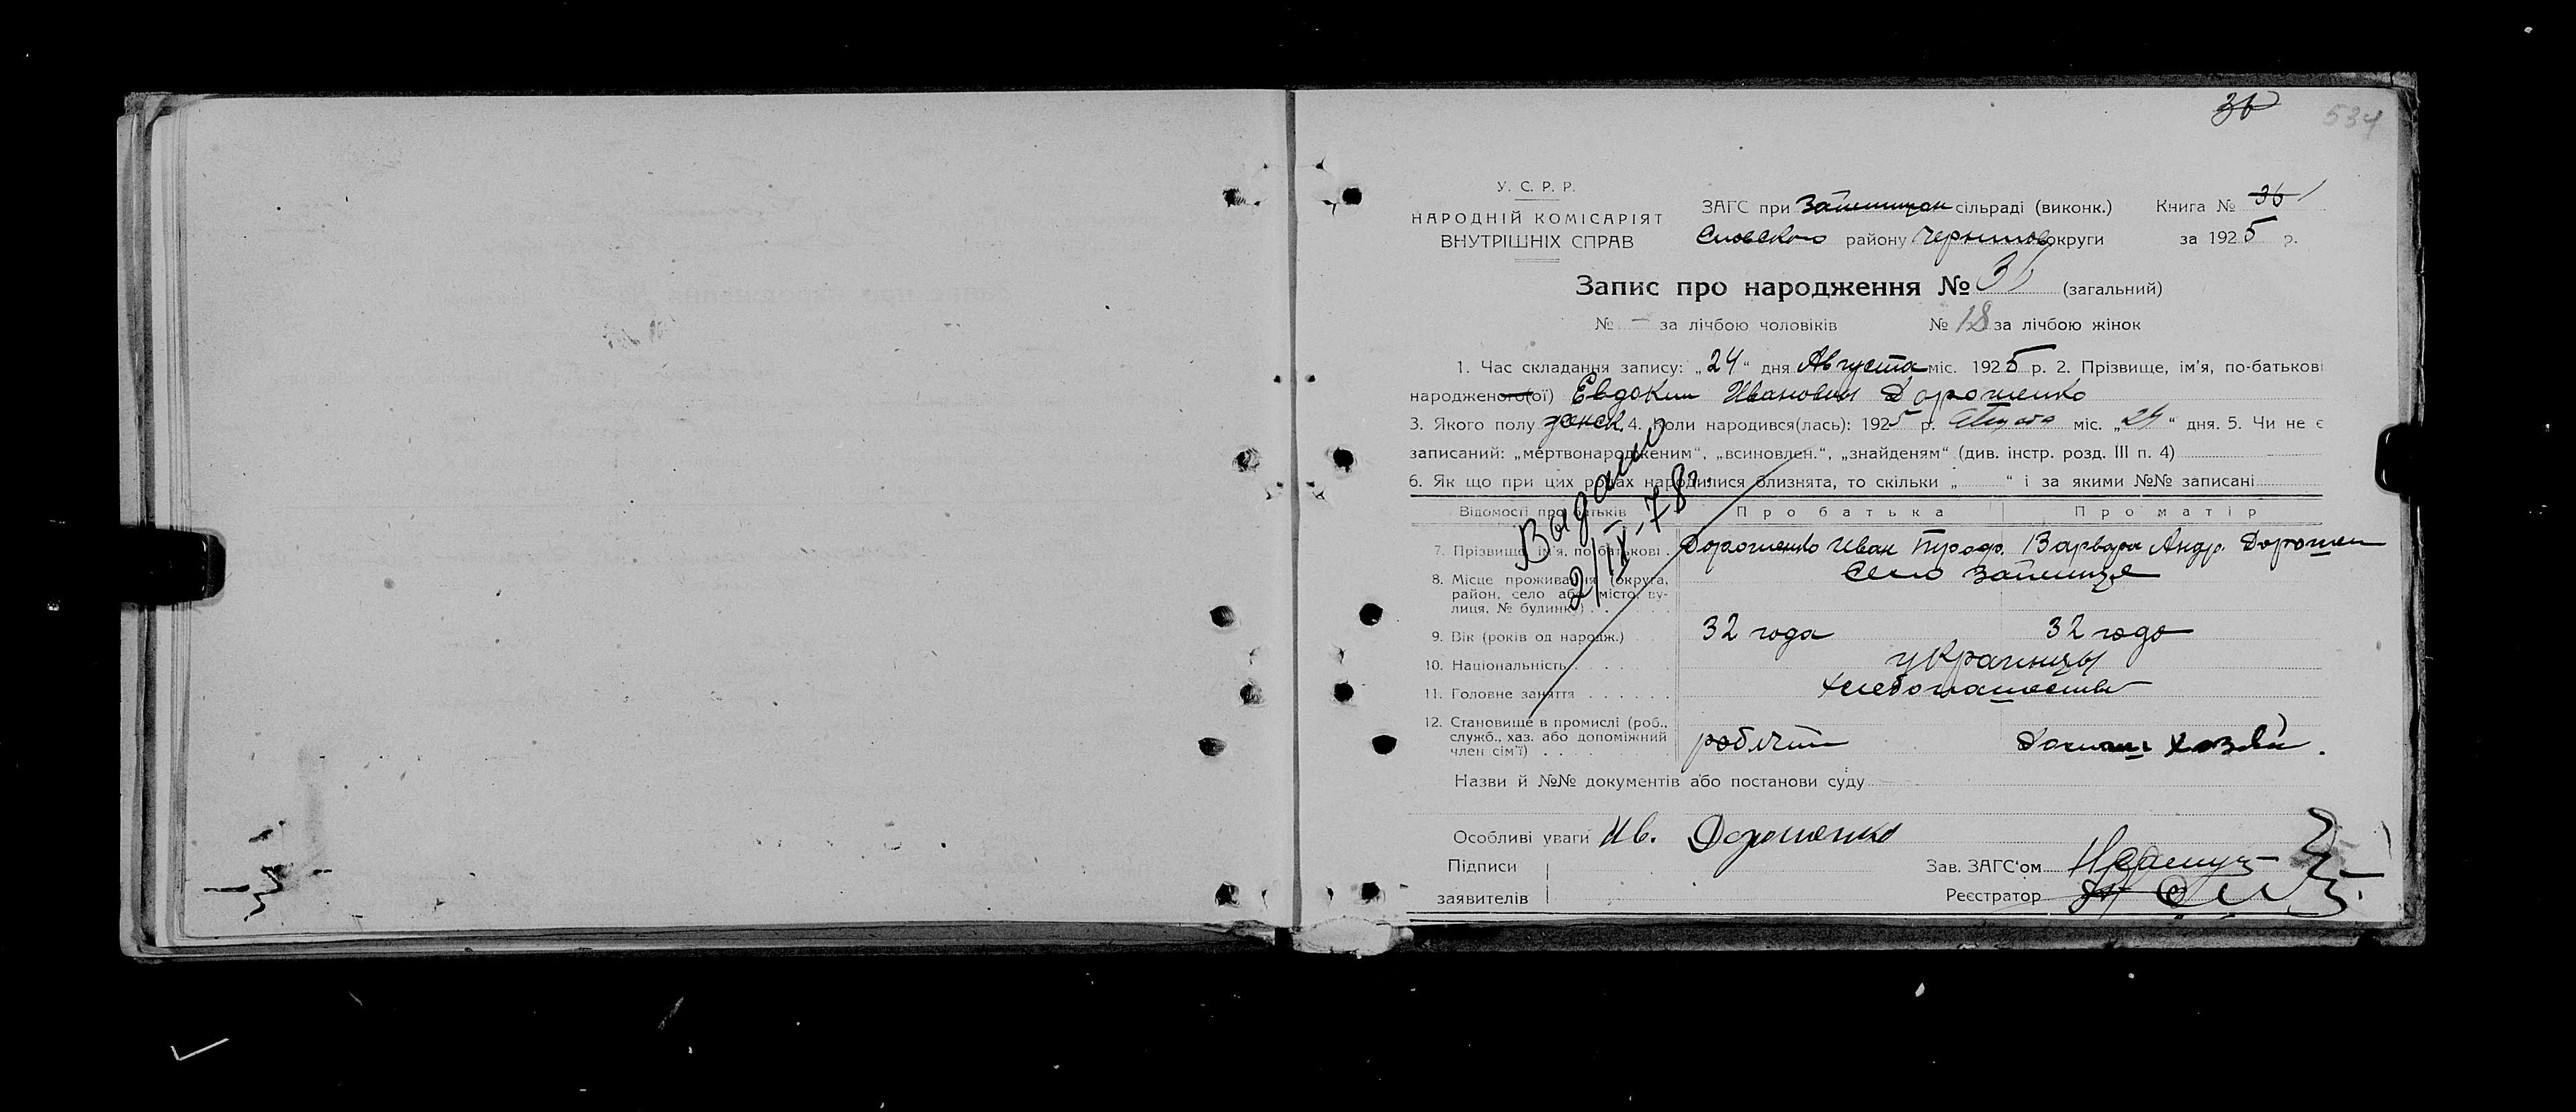 36
534
У. С. Р. Р.
НАРОДНІЙ КОМІСАРІЯТ
ВНУТРІШНІХ СПРАВ
ЗАГС при сільраді (виконк.) Книга № 36
району округи за 1925 р.
Запис про народження № (загальний)
№ - за лічбою чоловіків № 18 за лічбою жінок
1. Час складання запису: „24“ дня Августа міс. 1925 р. 2. Прізвище, ім'я, по-батькові
народженого(ої) Евдокии Ивановны Дорошенко
3. Якого полу женск. 4. Коли народився(лась): 1925 р. міс. „ “ дня. 5. Чи не є
записаний: „мертвонародженим“, „всиновлен.“, „знайденям“ (див. інстр. розд. III п. 4)
6. Як що при цих родах народилися близнята, то скільки „ “ і за якими №№ записані
Відомості про батьків Про батька Про матір
7. Прізвище, ім'я, по-батькові Дорошенко Иван Варвара Андр. Дорошен
8. Місце проживання (округа, район, село або місто, вулиця, № будинку) Село
9. Вік (років од народж.) 32 года 32 года
10. Національність украинцы
11. Головне заняття хлебопашество
12. Становище в промислі (роб., служб., хаз. або допоміжний член сім'ї) хозяй.
Выдано
2/IX-78г.
Назви й №№ документів або постанови суду
Особливі уваги Ив. Дорошенко
Підписи
заявителів
Зав. ЗАГС'ом
Реєстратор